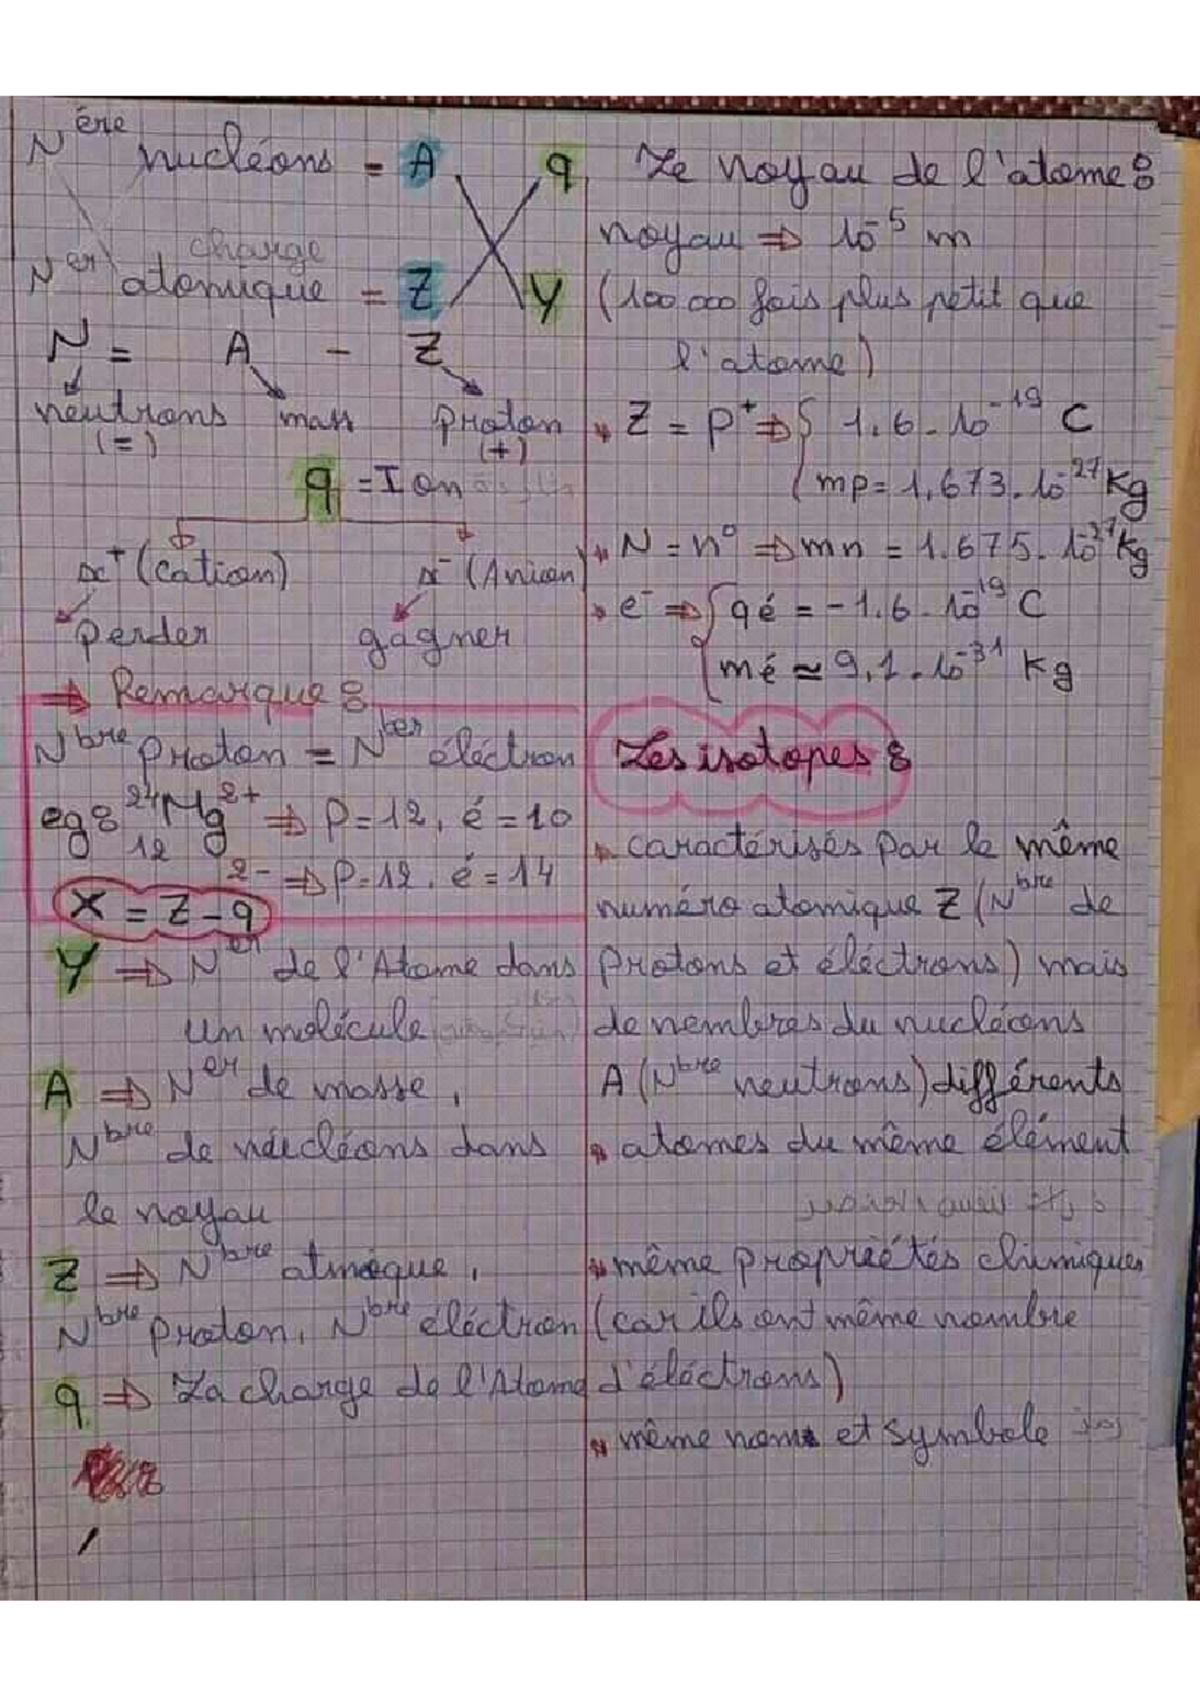 Nère nucléons = A q
charge
Ner atomique = Z Y
N = A - Z
neutrons mass proton
(=) (+)
q = Ion
x+ (Cation) x- (Anion)
perder gagner
⇒ Remarque :
Nbre proton = Nber éléctron
eg : 24 12 Mg 2+ ⇒ P=12, é=10
2- ⇒ P=12, é=14
X = Z - q
Y ⇒ Ner de l'Atome dans
un molécule
A ⇒ Ner de masse,
Nbre de néucléons dans
le noyau
Z ⇒ Nbre atmoque,
Nbre proton, Nbre éléctron
q ⇒ La charge de l'Atome
Le noyau de l'atome :
noyau ⇒ 10-5 m
(100 000 fois plus petit que
l'atome)
Z = p+ ⇒ { 1,6 . 10-19 C
mp = 1,673 . 10-27 Kg
N = n° ⇒ mn = 1.675 . 10-27 Kg
e- ⇒ { qé = -1.6 . 10-19 C
mé ≃ 9,1 . 10-31 Kg
Les isotopes :
caractérisés par le même
numéro atomique Z (Nbre de
protons et éléctrons) mais
de nembres du nucléons
A (Nbre neutrons) différents
atomes du même élément
même propriétés chimiques
(car ils ont même nombre
d'éléctrons)
même nom et symbole